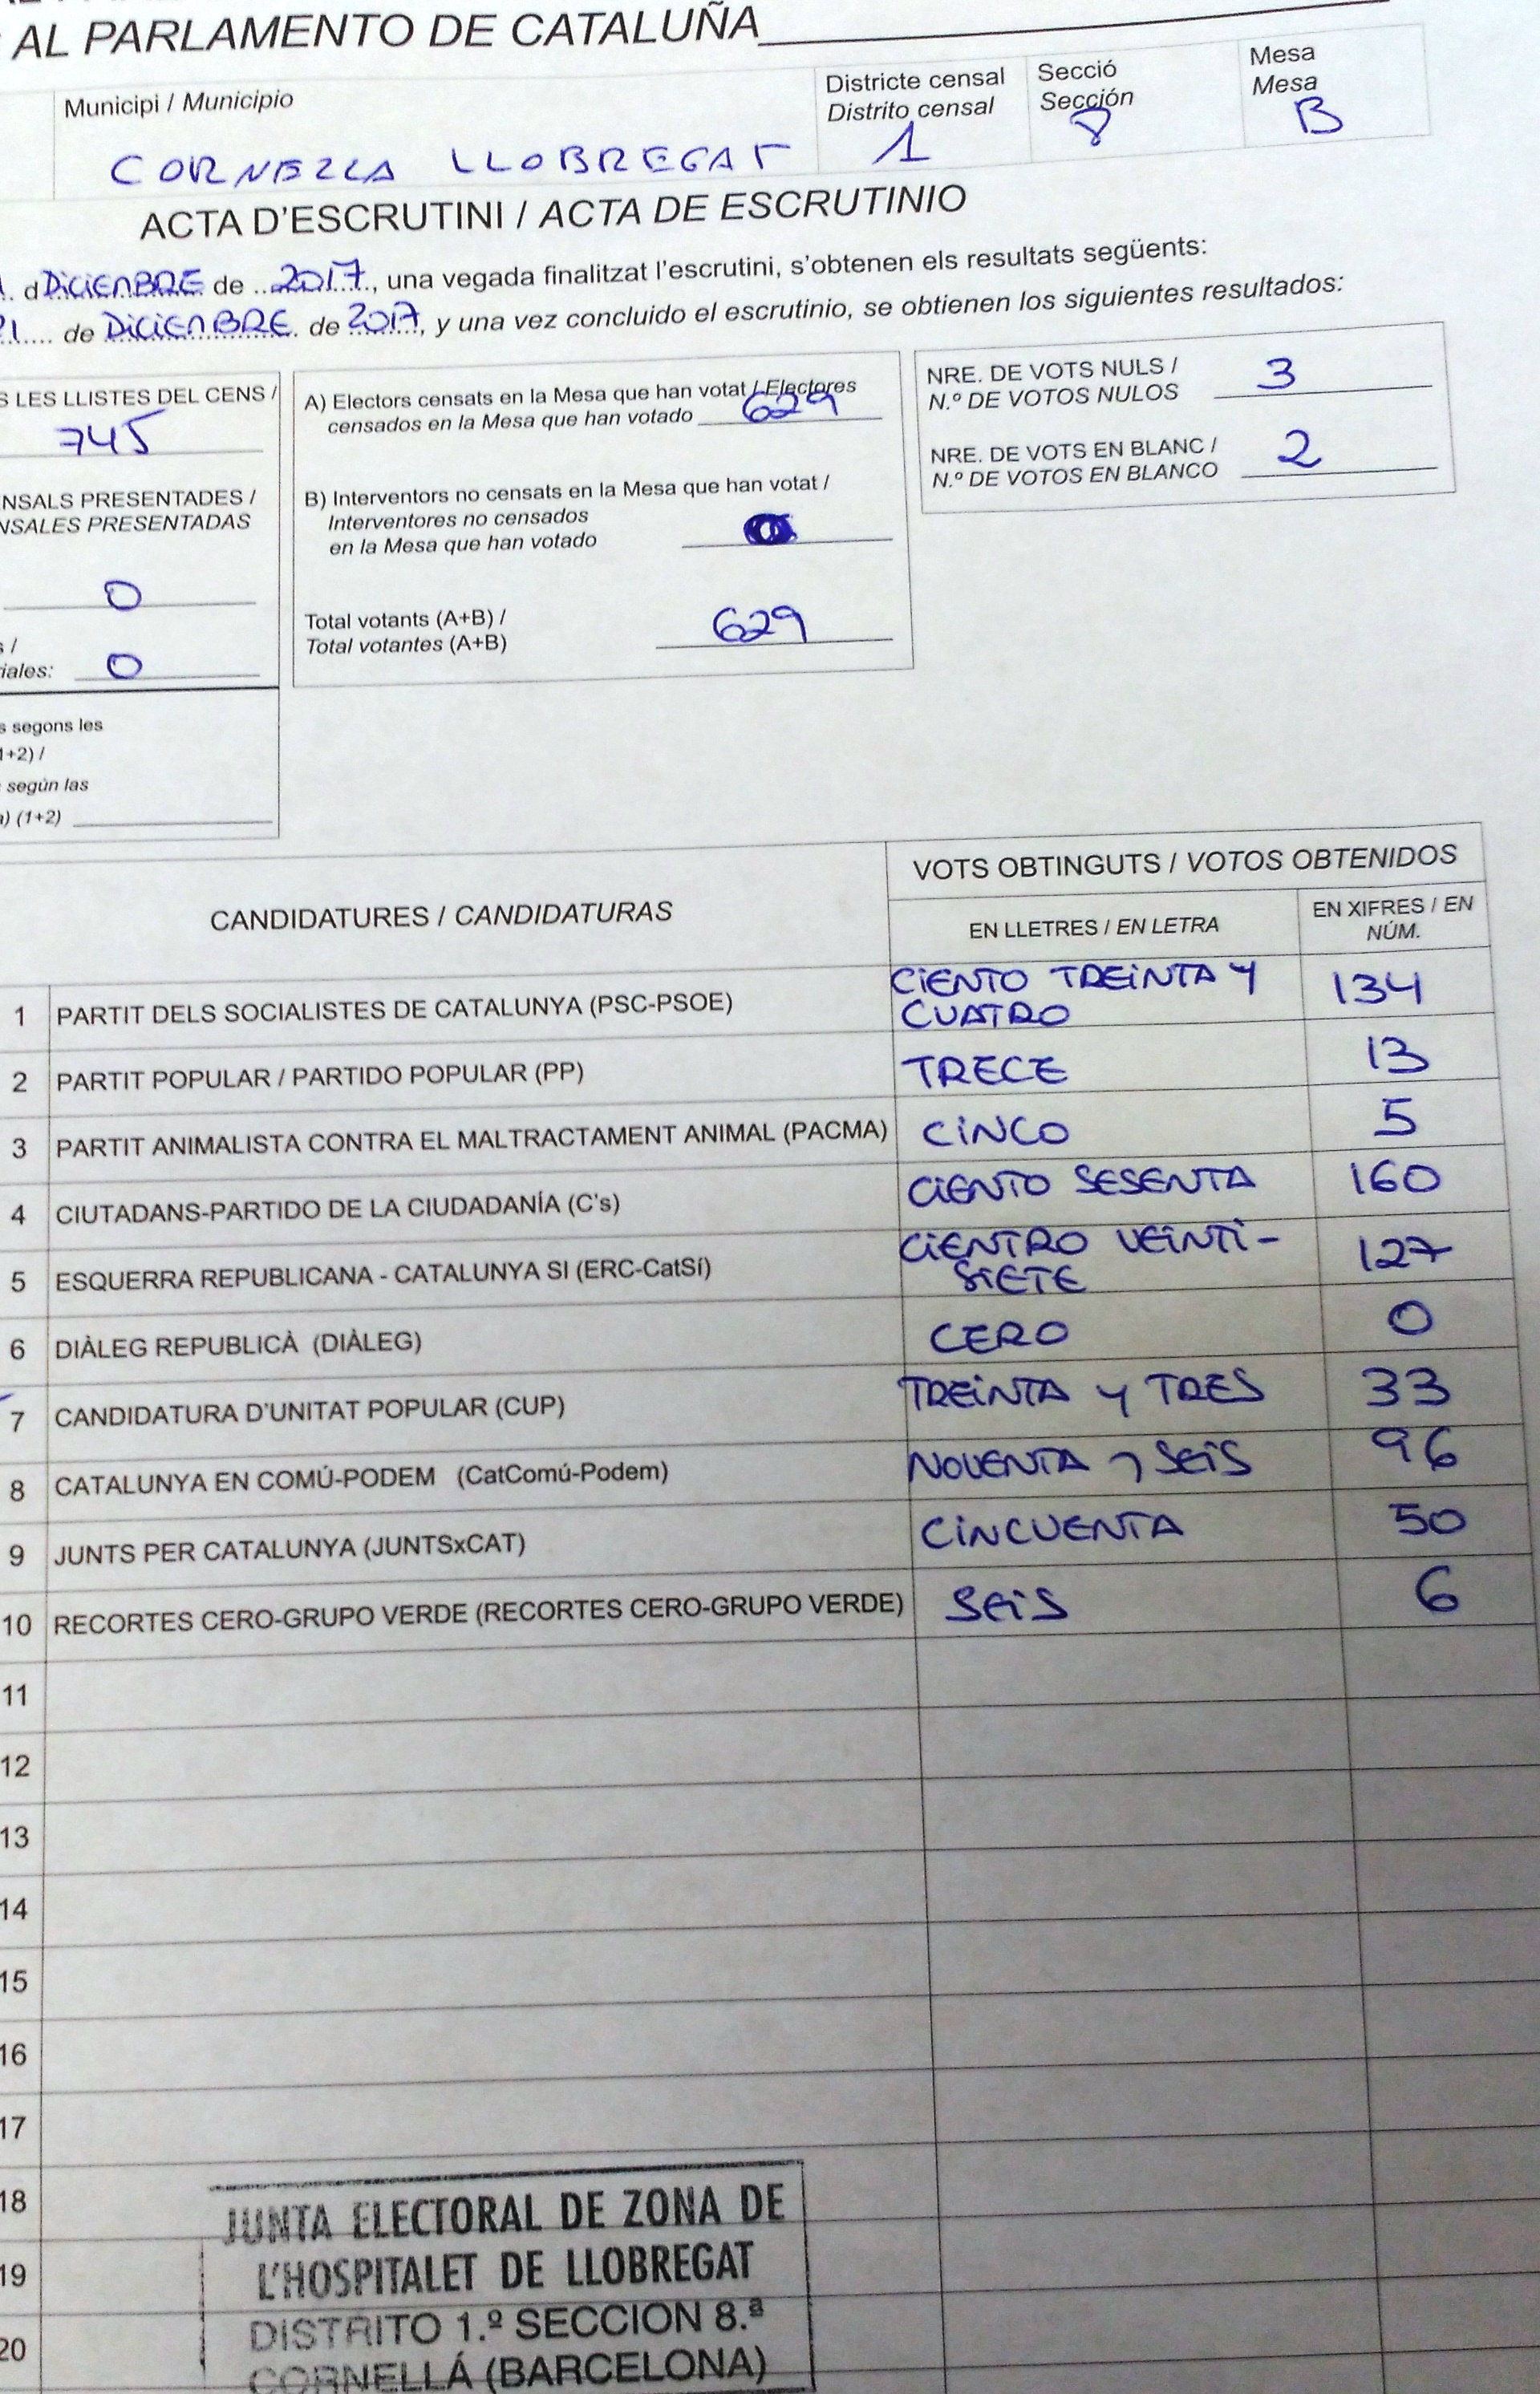 AL PARLAMENTO DE CATALUÑA
Municipi / Municipio
CORNELLA LLOBREGAT
Districte censal
Distrito censal
1
Secció
Sección
8
Mesa
Mesa
B
ACTA D'ESCRUTINI / ACTA DE ESCRUTINIO
d DiCiEMBRE de 2017, una vegada finalitzat l'escrutini, s'obtenen els resultats següents:
de DiCiEMBRE de 2017, y una vez concluido el escrutinio, se obtienen los siguientes resultados:
LES LLISTES DEL CENS /
745
PRESENTADES /
PRESENTADAS
0
0
segons les
(1+2) /
según las
(1+2)
A) Electors censats en la Mesa que han votat / Electores
censados en la Mesa que han votado 629
B) Interventors no censats en la Mesa que han votat /
Interventores no censados
en la Mesa que han votado 0
Total votants (A+B) /
Total votantes (A+B) 629
NRE. DE VOTS NULS /
N.º DE VOTOS NULOS 3
NRE. DE VOTS EN BLANC /
N.º DE VOTOS EN BLANCO 2
CANDIDATURES / CANDIDATURAS
VOTS OBTINGUTS / VOTOS OBTENIDOS
EN LLETRES / EN LETRA
EN XIFRES / EN
NÚM.
1 PARTIT DELS SOCIALISTES DE CATALUNYA (PSC-PSOE) CiENTO TREiNTA Y
CUATRO 134
2 PARTIT POPULAR / PARTIDO POPULAR (PP) TRECE 13
3 PARTIT ANIMALISTA CONTRA EL MALTRACTAMENT ANIMAL (PACMA) CiNCO 5
4 CIUTADANS-PARTIDO DE LA CIUDADANÍA (C's) CiENTO SESENTA 160
5 ESQUERRA REPUBLICANA - CATALUNYA SI (ERC-CatSí) CiENTRO VEiNTi-
SiETE 127
6 DIÀLEG REPUBLICÀ (DIÀLEG) CERO 0
7 CANDIDATURA D'UNITAT POPULAR (CUP) TREiNTA y TRES 33
8 CATALUNYA EN COMÚ-PODEM (CatComú-Podem) NOVENTA y SEiS 96
9 JUNTS PER CATALUNYA (JUNTSxCAT) CiNCUENTA 50
10 RECORTES CERO-GRUPO VERDE (RECORTES CERO-GRUPO VERDE) SEiS 6
11
12
13
14
15
16
17
18
19
20
JUNTA ELECTORAL DE ZONA DE
L'HOSPITALET DE LLOBREGAT
DISTRITO 1.º SECCION 8.ª
CORNELLÁ (BARCELONA)